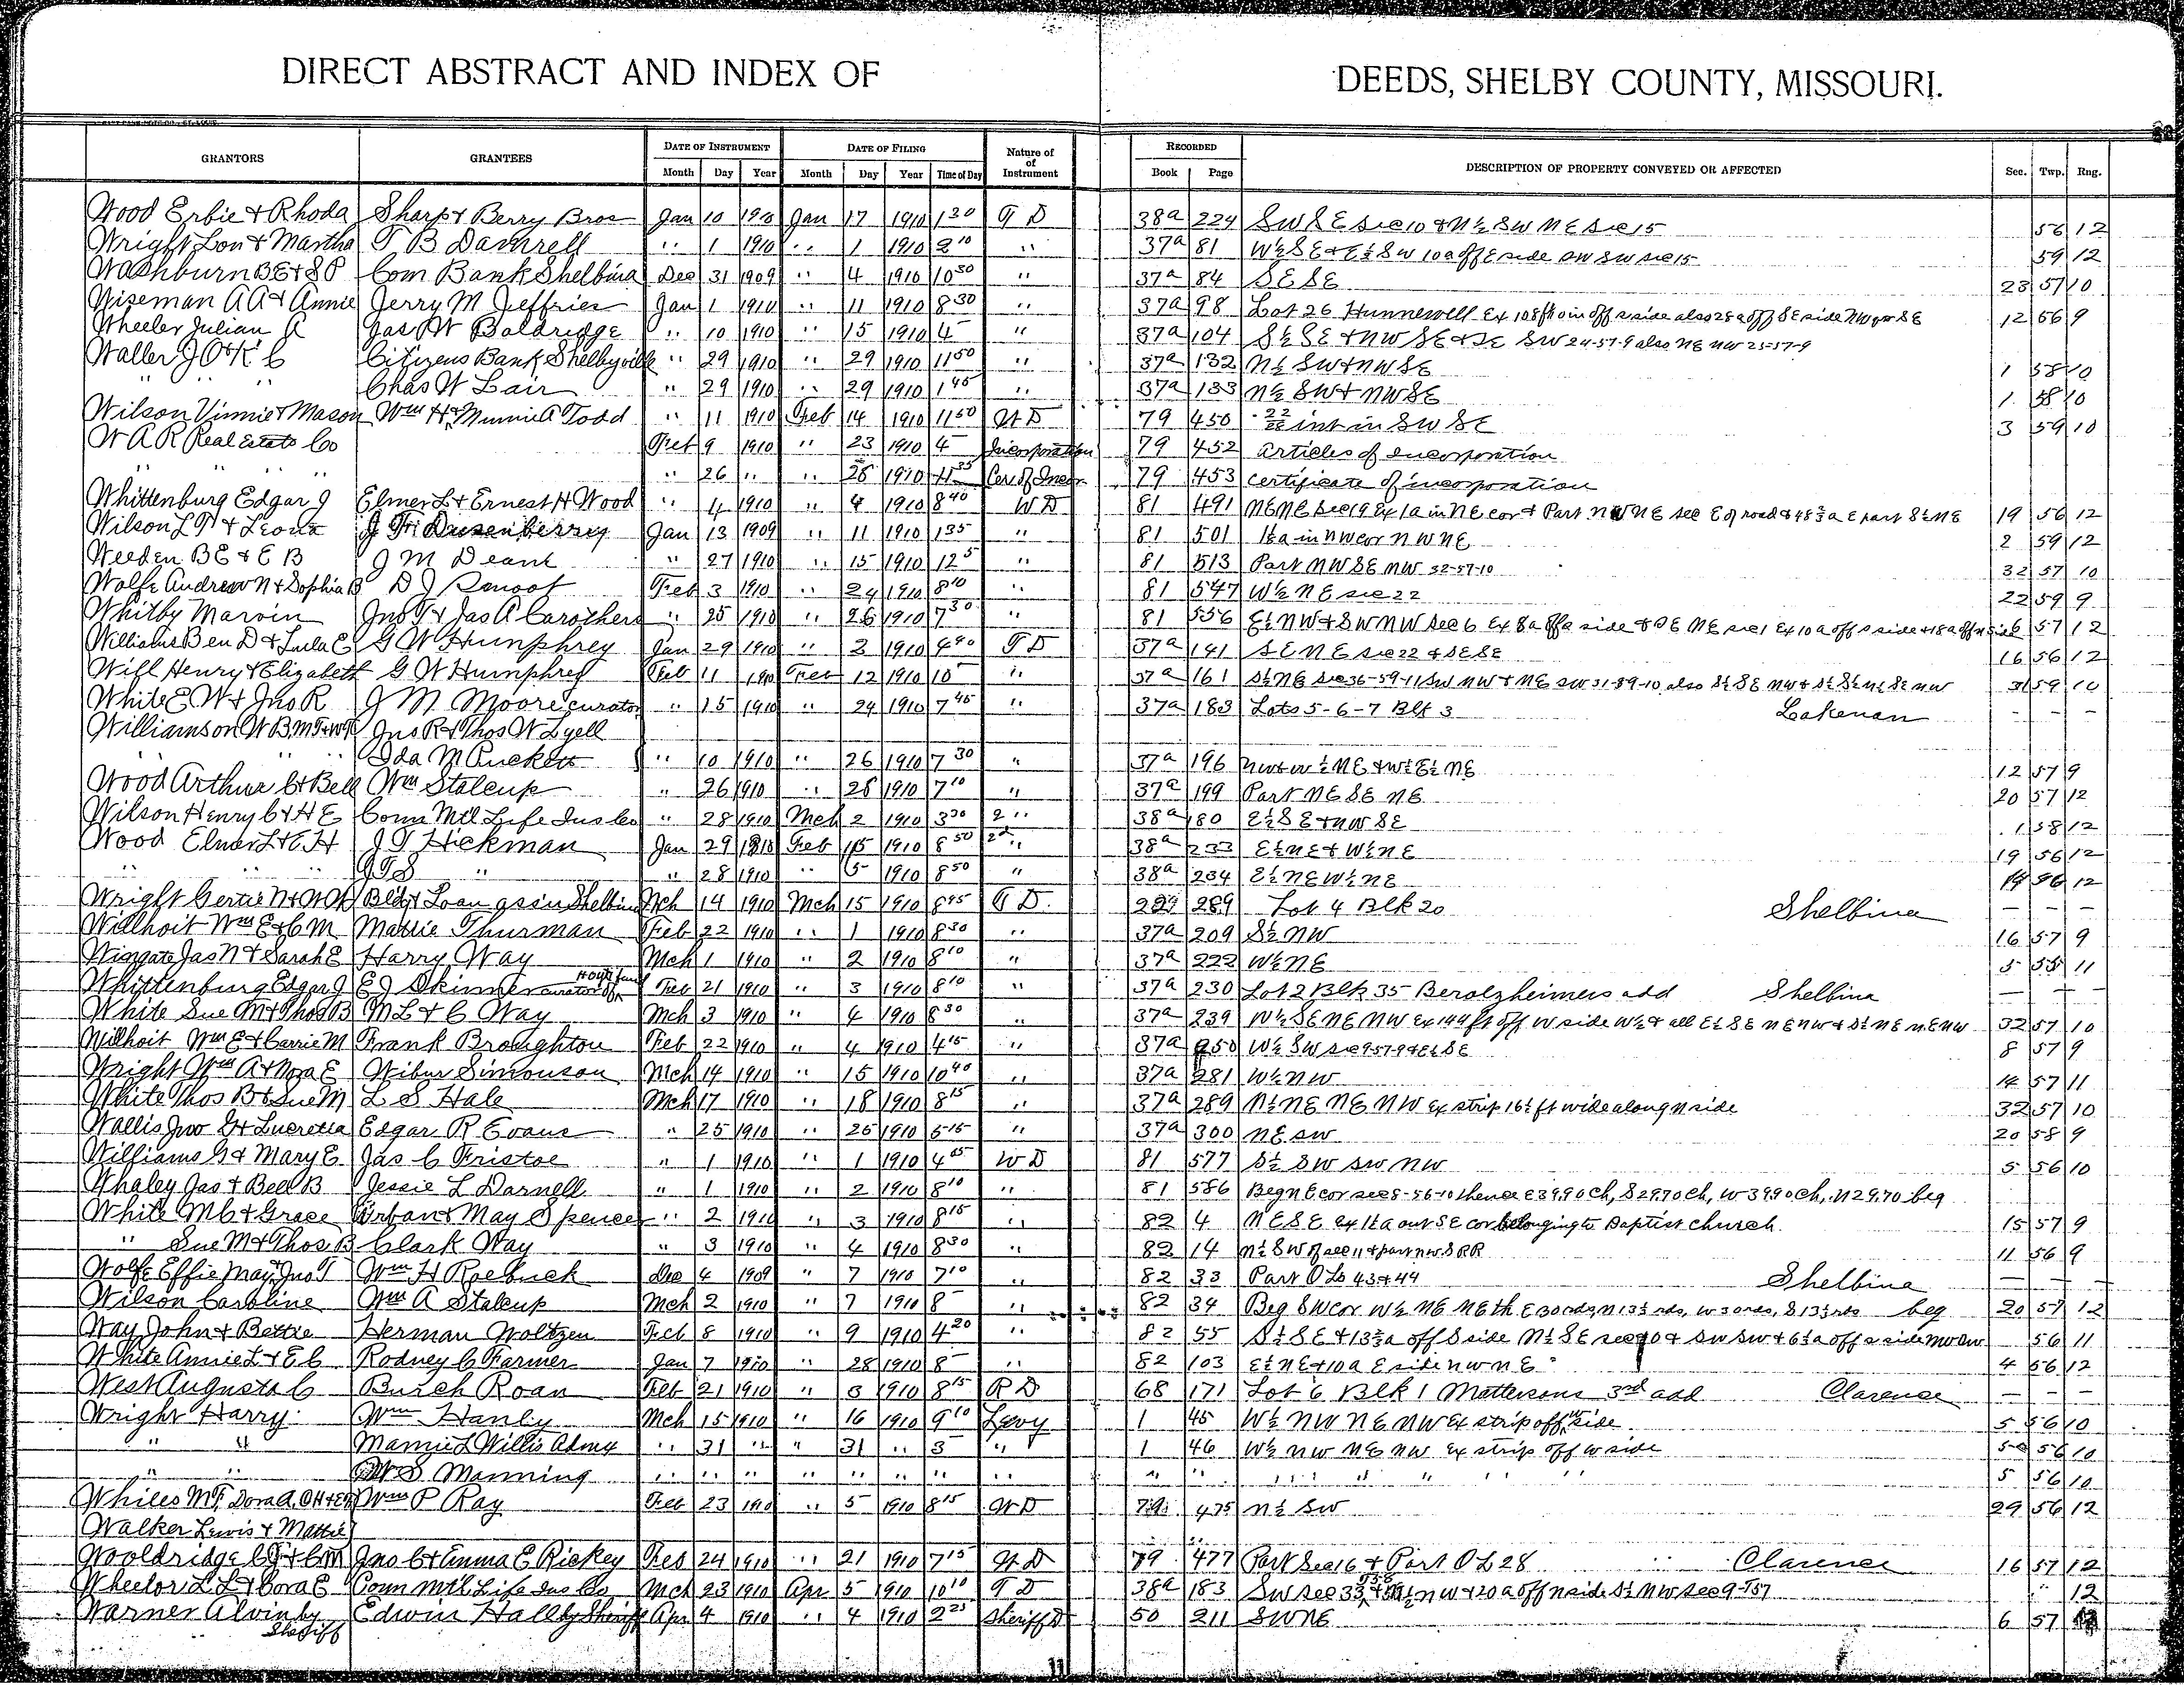 DIRECT ABSTRACT AND INDEX OF DEEDS, SHELBY COUNTY, MISSOURI.
GRANTORS GRANTEES DATE OF INSTRUMENT DATE OF FILING Nature of of Instrument RECORDED DESCRIPTION OF PROPERTY CONVEYED OR AFFECTED Sec. Twp. Rng.
Month Day Year Month Day Year Time of Day Book Page
Wood Erbie & Rhoda Sharp & Berry Bros Jan 10 1910 Jan 17 1910 1 30 T D 38a 224 SW SE sec 10 & N½ SW NE sec 15 56 12
Wright Lon & Martha T B Damrell " 1 1910 " 1 1910 2 10 " 37a 81 W½ SE & E½ SW 10a off E side SW SW sec 15 59 12
Washburn B E & S P Com Bank Shelbina Dec 31 1909 " 4 1910 10 30 " 37a 84 SE SE 23 57 10
Wiseman A A & Annie Jerry M Jeffries Jan 1 1910 " 11 1910 8 30 " 37a 98 Lot 26 Hunnewell Ex 108 ft off side also 28a off SE side NW SE 12 56 9
Wheeler Julian A Jas W Baldridge " 10 1910 " 15 1910 4 " 37a 104 S½ SE & NW SE & SE SW 24-57-9 also NE NW 25-57-9
Waller J O & K C Citizens Bank Shelbyville " 29 1910 " 29 1910 11 50 " 37a 132 N½ SW & NW SE 1 58 10
" " " Chas W Lair " 29 1910 " 29 1910 1 45 " 37a 133 N½ SW & NW SE 1 58 10
Wilson Vinnie & Mason Wm H & Minnie A Todd " 11 1910 Feb 14 1910 11 50 W D 79 450 int in SW SE 3 59 10
W A R Real Estate Co Feb 9 1910 " 23 1910 4 Incorporation 79 452 Articles of incorporation
" " " " 26 " " 28 1910 11 35 Cer of Incor 79 453 certificate of incorporation
Whittenburg Edgar J Elmer L & Ernest H Wood " 4 1910 " 4 1910 8 40 W D 81 491 NE NE sec 19 Ex 1a in NE cor & Part NW NE sec E of road & 48¾a E part S½ NE 19 56 12
Wilson L T & Leona J Fr Dusenberry Jan 13 1909 " 11 1910 1 35 " 81 501 1½a in NW cor NW NE 2 59 12
Weeden B E & E B J M Deane " 27 1910 " 15 1910 12 5 " 81 513 Part NW SE NW 32-57-10 32 57 10
Wolfe Andrew N & Sophia B D J Smoot Feb 3 1910 " 24 1910 8 10 " 81 547 W½ NE sec 22 22 59 9
Whitby Marvin Jno T & Jas A Carothers " 25 1910 " 26 1910 7 30 " 81 556 E½ NW & SW NW sec 6 Ex 8a off side & SE NE sec 1 Ex 10a off s side & 18a off N side 6 57 12
Williams Ben D & Lula E G W Humphrey Jan 29 1910 " 3 1910 4 40 T D 37a 141 SE NE sec 22 & SE SE 16 56 12
Will Henry & Elizabeth G W Humphrey Feb 11 1910 Feb 12 1910 10 " 37a 161 S½ NE sec 36-59-11 SW NW & NE SW 31-59-10 also S½ SE NW & S½ S½ N½ SE NW 31 59 10
White E W & Jno R J M Moore curator " 15 1910 " 24 1910 7 45 " 37a 183 Lots 5-6-7 Blk 3 Lakenan - - -
Williamson W B, M F & W T Jno R & Thos W Lyell
" " " Ida M Puckett " 10 1910 " 26 1910 7 30 " 37a 196 NW & W½ NE & W½ E½ NE 12 57 9
Wood Arthur C & Bell Wm Stalcup " 26 1910 " 28 1910 7 10 " 37a 199 Part NE SE NE 20 57 12
Wilson Henry C & H E Conn Mtl Life Ins Co " 28 1910 Mch 2 1910 3 30 2 " 38a 180 E½ SE & NW SE 1 58 12
Wood Elmer L & E H J T Hickman Jan 29 1910 Feb 15 1910 8 50 2d " 38a 233 E½ NE & W½ NE 19 56 12
" " J T S " " 28 1910 " 5 1910 8 50 " 38a 234 E½ NE W½ NE 19 56 12
Wright Gertie N & W W Bldg & Loan assin Shelbina Mch 14 1910 Mch 15 1910 8 45 T D 289 Lot 4 Blk 20 Shelbina - - -
Willhoit Wm E & C M Mattie Thurman Feb 22 1910 " 1 1910 8 30 " 37a 209 S½ NW 16 57 9
Wingate Jas N & Sarah E Harry Way Mch 1 1910 " 2 1910 8 10 " 37a 222 W½ NE 5 58 11
Whittenburg Edgar J E J Skinner curator of Feb 21 1910 " 3 1910 8 10 " 37a 230 Lot 2 Blk 35 Berolzheimers add Shelbina - - -
White Sue M & Thos B M L & C Way Mch 3 1910 " 4 1910 8 30 " 37a 239 W½ SE NE NW Ex 144 ft off W side W½ & all E½ SE NE NW & S½ NE NE NW 32 57 10
Willhoit Wm E & Carrie M Frank Broughton Feb 22 1910 " 4 1910 4 15 " 37a 250 W½ SW sec 9-57-9 & E½ SE 8 57 9
Wright Wm A & Nora E Wibur Simonson Mch 14 1910 " 15 1910 10 40 " 37a 281 W½ NW 14 57 11
White Thos B & Sue M L S Hale Mch 17 1910 " 18 1910 8 15 " 37a 289 N½ NE NE NW Ex strip 16½ ft wide along N side 32 57 10
Wallis Jno G & Lucretia Edgar R Evans " 25 1910 " 26 1910 5 15 " 37a 300 NE SW 20 58 9
Williams G & Mary E Jas C Fristoe " 1 1910 " 1 1910 4 05 W D 81 577 S½ SW SW NW 5 56 10
Whaley Jas & Bell B Jessie L Darnell " 1 1910 " 2 1910 8 10 " 81 586 Beg NE cor sec 8-56-10 thence E 39.90 ch, S 29.70 ch, W 39.90 ch, N 29.70 beg
White M C & Grace Urban & May Spencer " 2 1910 " 3 1910 8 15 " 82 4 NE SE ex 1½a out SE cor belonging to Baptist church 15 57 9
" Sue M & Thos B Clark Way " 3 1910 " 4 1910 8 30 " 82 14 N½ SW of sec 11 & part NW S RR 11 56 9
Wolfe Effie May & Jno T Wm H Roebuck Dec 4 1909 " 7 1910 7 10 " 82 33 Part O L 43 & 44 Shelbina - - -
Wilson Caroline Wm A Stalcup Mch 2 1910 " 7 1910 8 " 82 34 Beg SW cor W½ NE NE th E 30 rds, N 13½ rds, W 30 rds, S 13½ rds beg 20 57 12
Way John & Bettie Herman Woltzen Feb 8 1910 " 9 1910 4 20 " 82 55 S½ SE & 13¾a off S side N½ SE sec & SW SW & 6½a off s side NW SW 56 11
White Annie L & E C Rodney C Farmer Jan 7 1910 " 28 1910 8 " 82 103 E½ NE & 10a E side NW NE 4 56 12
West Augusta C Burch Roan Feb 21 1910 " 3 1910 8 15 R D 68 171 Lot 6 Blk 1 Mattersons 3rd add Clarence - - -
Wright Harry Wm Hanly Mch 15 1910 " 16 1910 9 10 Levy 1 45 W½ NW NE NW Ex strip off W side 5 56 10
" " Mamie L Willis Admx " 31 " " 31 " 3 " 1 46 W½ NW NE NW Ex strip off W side 5 56 10
" " W S Manning " " " " " " " " " " " " " " 5 56 10
Whiles M F, Dora A, O H & E Wm P Ray Feb 23 1910 " 5 1910 8 15 W D 79 475 N½ SW 29 56 12
Walker Lewis & Mattie
Wooldridge C J & C M Jno C & Emma E Rickey Feb 24 1910 " 21 1910 7 15 W D 79 477 Part Sec 16 & Part O L 28 Clarence 16 57 12
Wheelor L L & Cora E Conn Mtl Life Ins Co Mch 23 1910 Apr 5 1910 10 10 T D 38a 183 SW sec 33 & N½ NW & 20a off N side S½ NW sec 9-T57 " 12
Warner Alvin by Sheriff Edwin Hall by Sheriff Apr 4 1910 " 4 1910 2 25 Sheriff D 50 211 SW NE 6 57
11